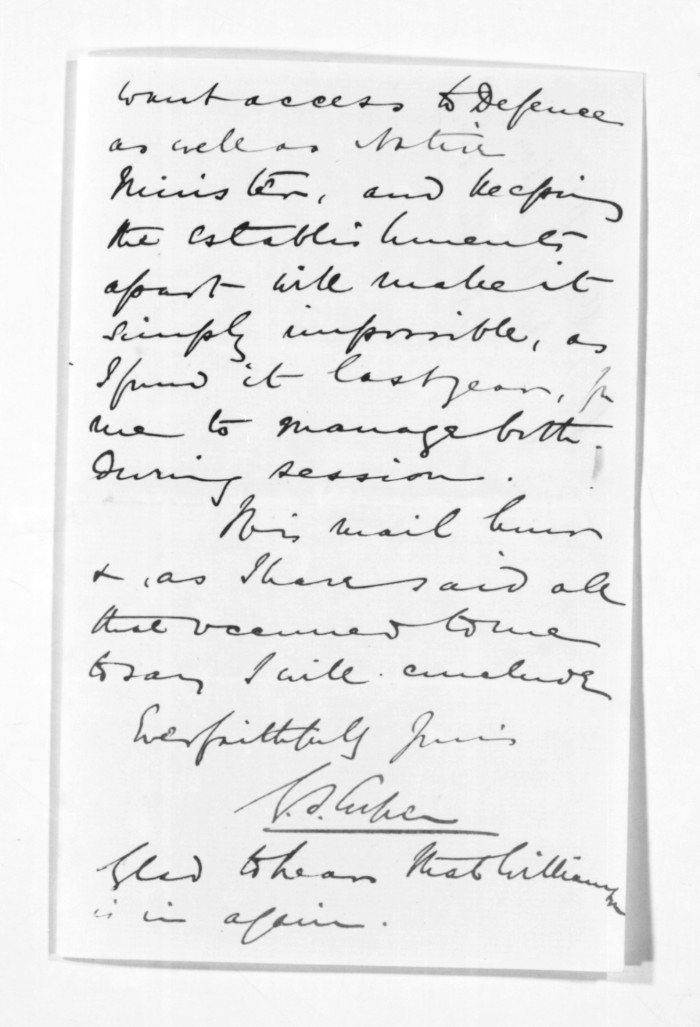 want access to Defence
as well as Native
Minister, and keeping
the establishments
apart will make it
simply impossible, as
I find it last year, for
me to manage both
during session.
This mail hour
& , as I have said all
that occurred to me
to say I will conclude
Ever faithfully yours
Glad to hear that Williamson
is in again.